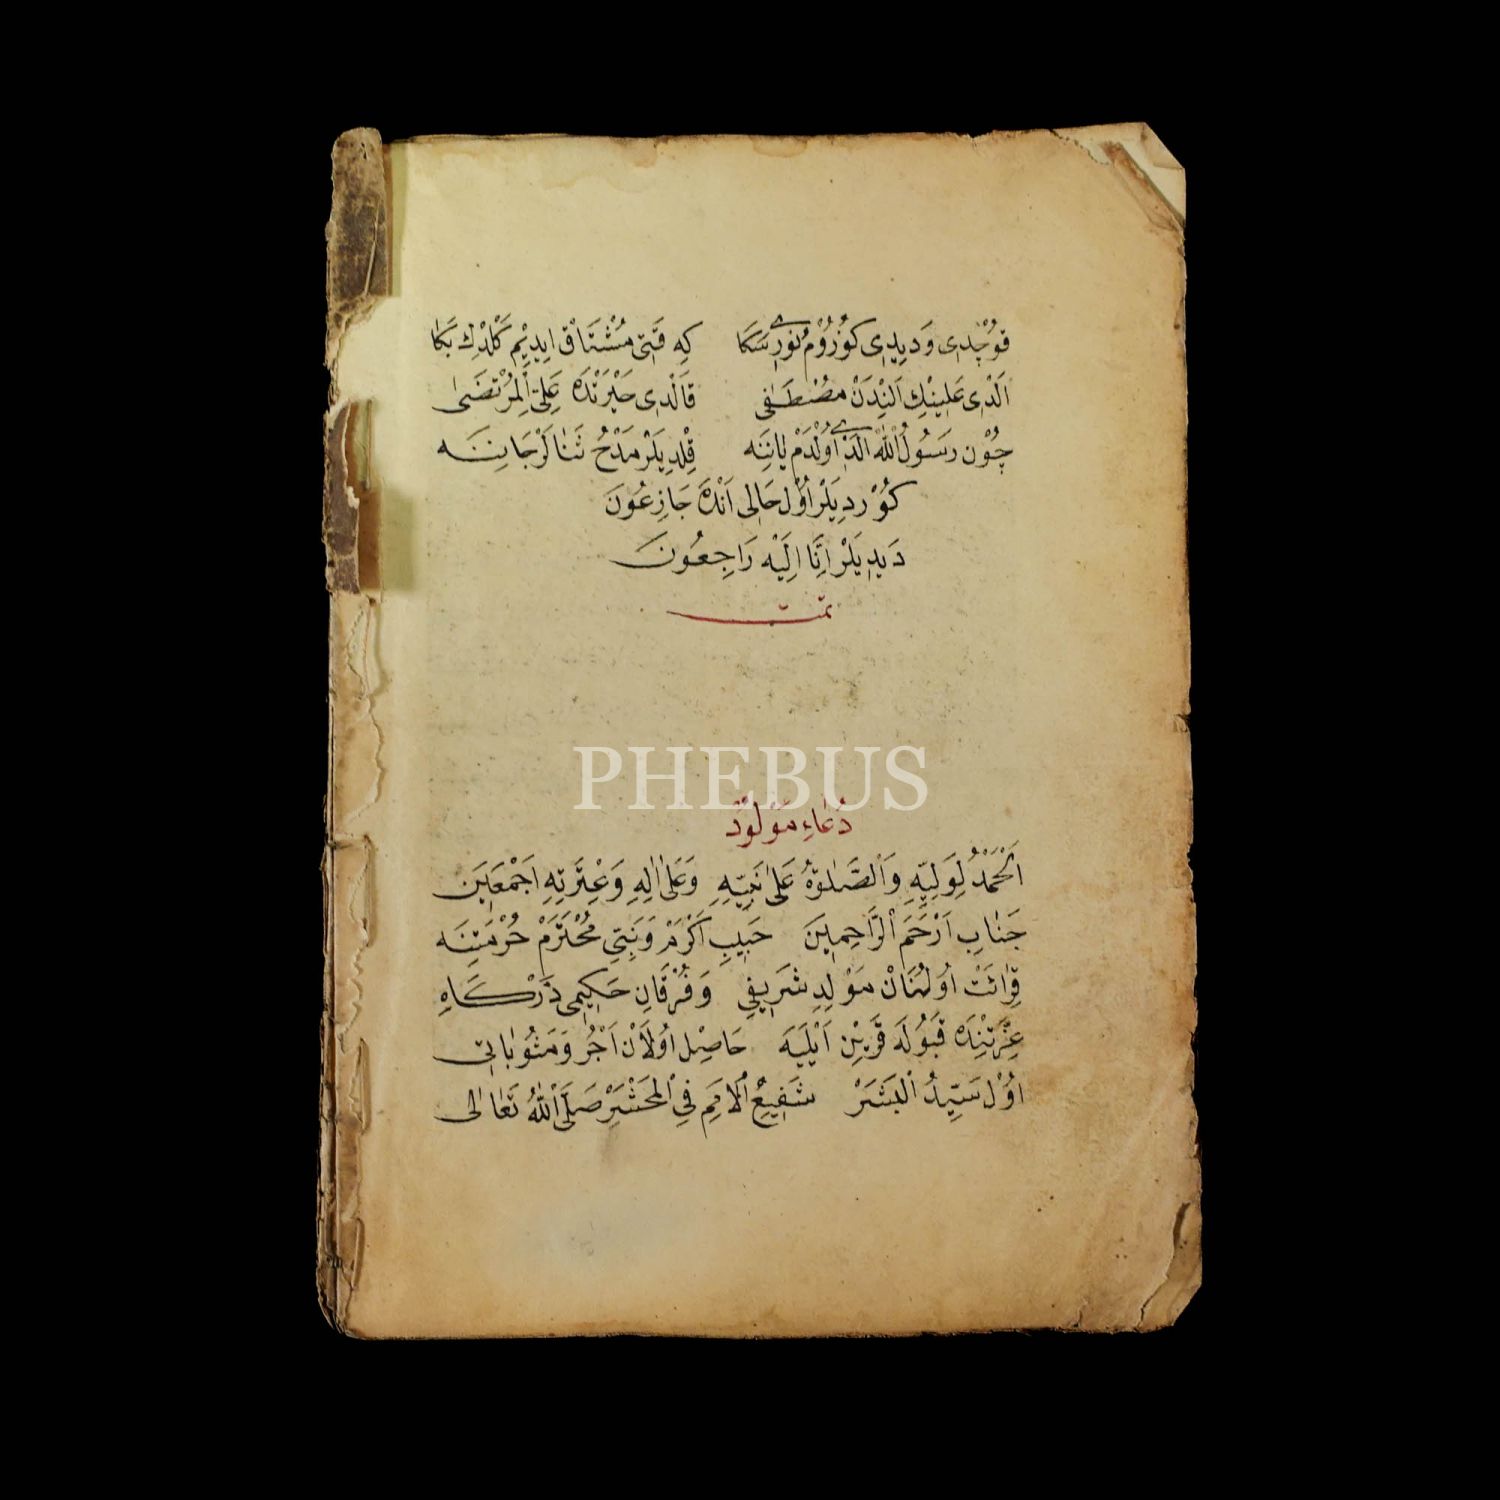 قُوْجْدِى وَدِيدِى كُوزُرُومُ نُورِى سَكَا كِه قَتِى مُشْتَاق ايدِيْم كَلْدِكْ بَكَا
اَلْدِى عَلِينِكْ اَلِنْدَنْ مُصْطَفٰى قَالْدِى حَيْرَتْدَه عَلِىِّ الْمُرْتَضٰى
چُوْن رَسُولُ اللّٰه اَلْدِى اُوْلْدَمْ يَانِنَه قِلْدِيلَرْ مَدْحُ ثَنَالَرْ جَانِنَه
كُوْرْدِيلَرْ اُوْل حَالِى اَنْدَه جَازِعُونَ
دَيدِيلَرْ اِنَّا اِلَيْه رَاجِعُونَ
تمّت
PHEBUS
دُعَاءِ مَوْلُودْ
اَلْحَمْدُ لِوَلِيِّهِ وَالصَّلٰوةُ عَلٰى نَبِيِّهِ وَعَلٰى اٰلِهِ وَعِتْرَتِهِ اَجْمَعِينَ
جَنَابِ اَرْحَمَ الرَّاحِمِينَ حَبِيبِ اَكْرَمْ وَنَبِىِّ مُحْتَرَمْ حُرْمَتِنَه
قِرَائَتْ اُولُنَانْ مَوْلِدِ شَرِيفِى وَفُرْقَانِ حَكِيمِى دَرْكَاهِ
عِزَّتِنْدَه قَبُولَه قَرِينْ اَيْلِيَه حَاصِل اُولَانْ اَجْرُ وَمَثُوبَاتِى
اُوْل سَيِّدُ الْبَشَرْ شَفِيعُ الْاُمَمِ فِى الْمَحْشَرْ صَلَّى اللّٰهُ تَعَالٰى